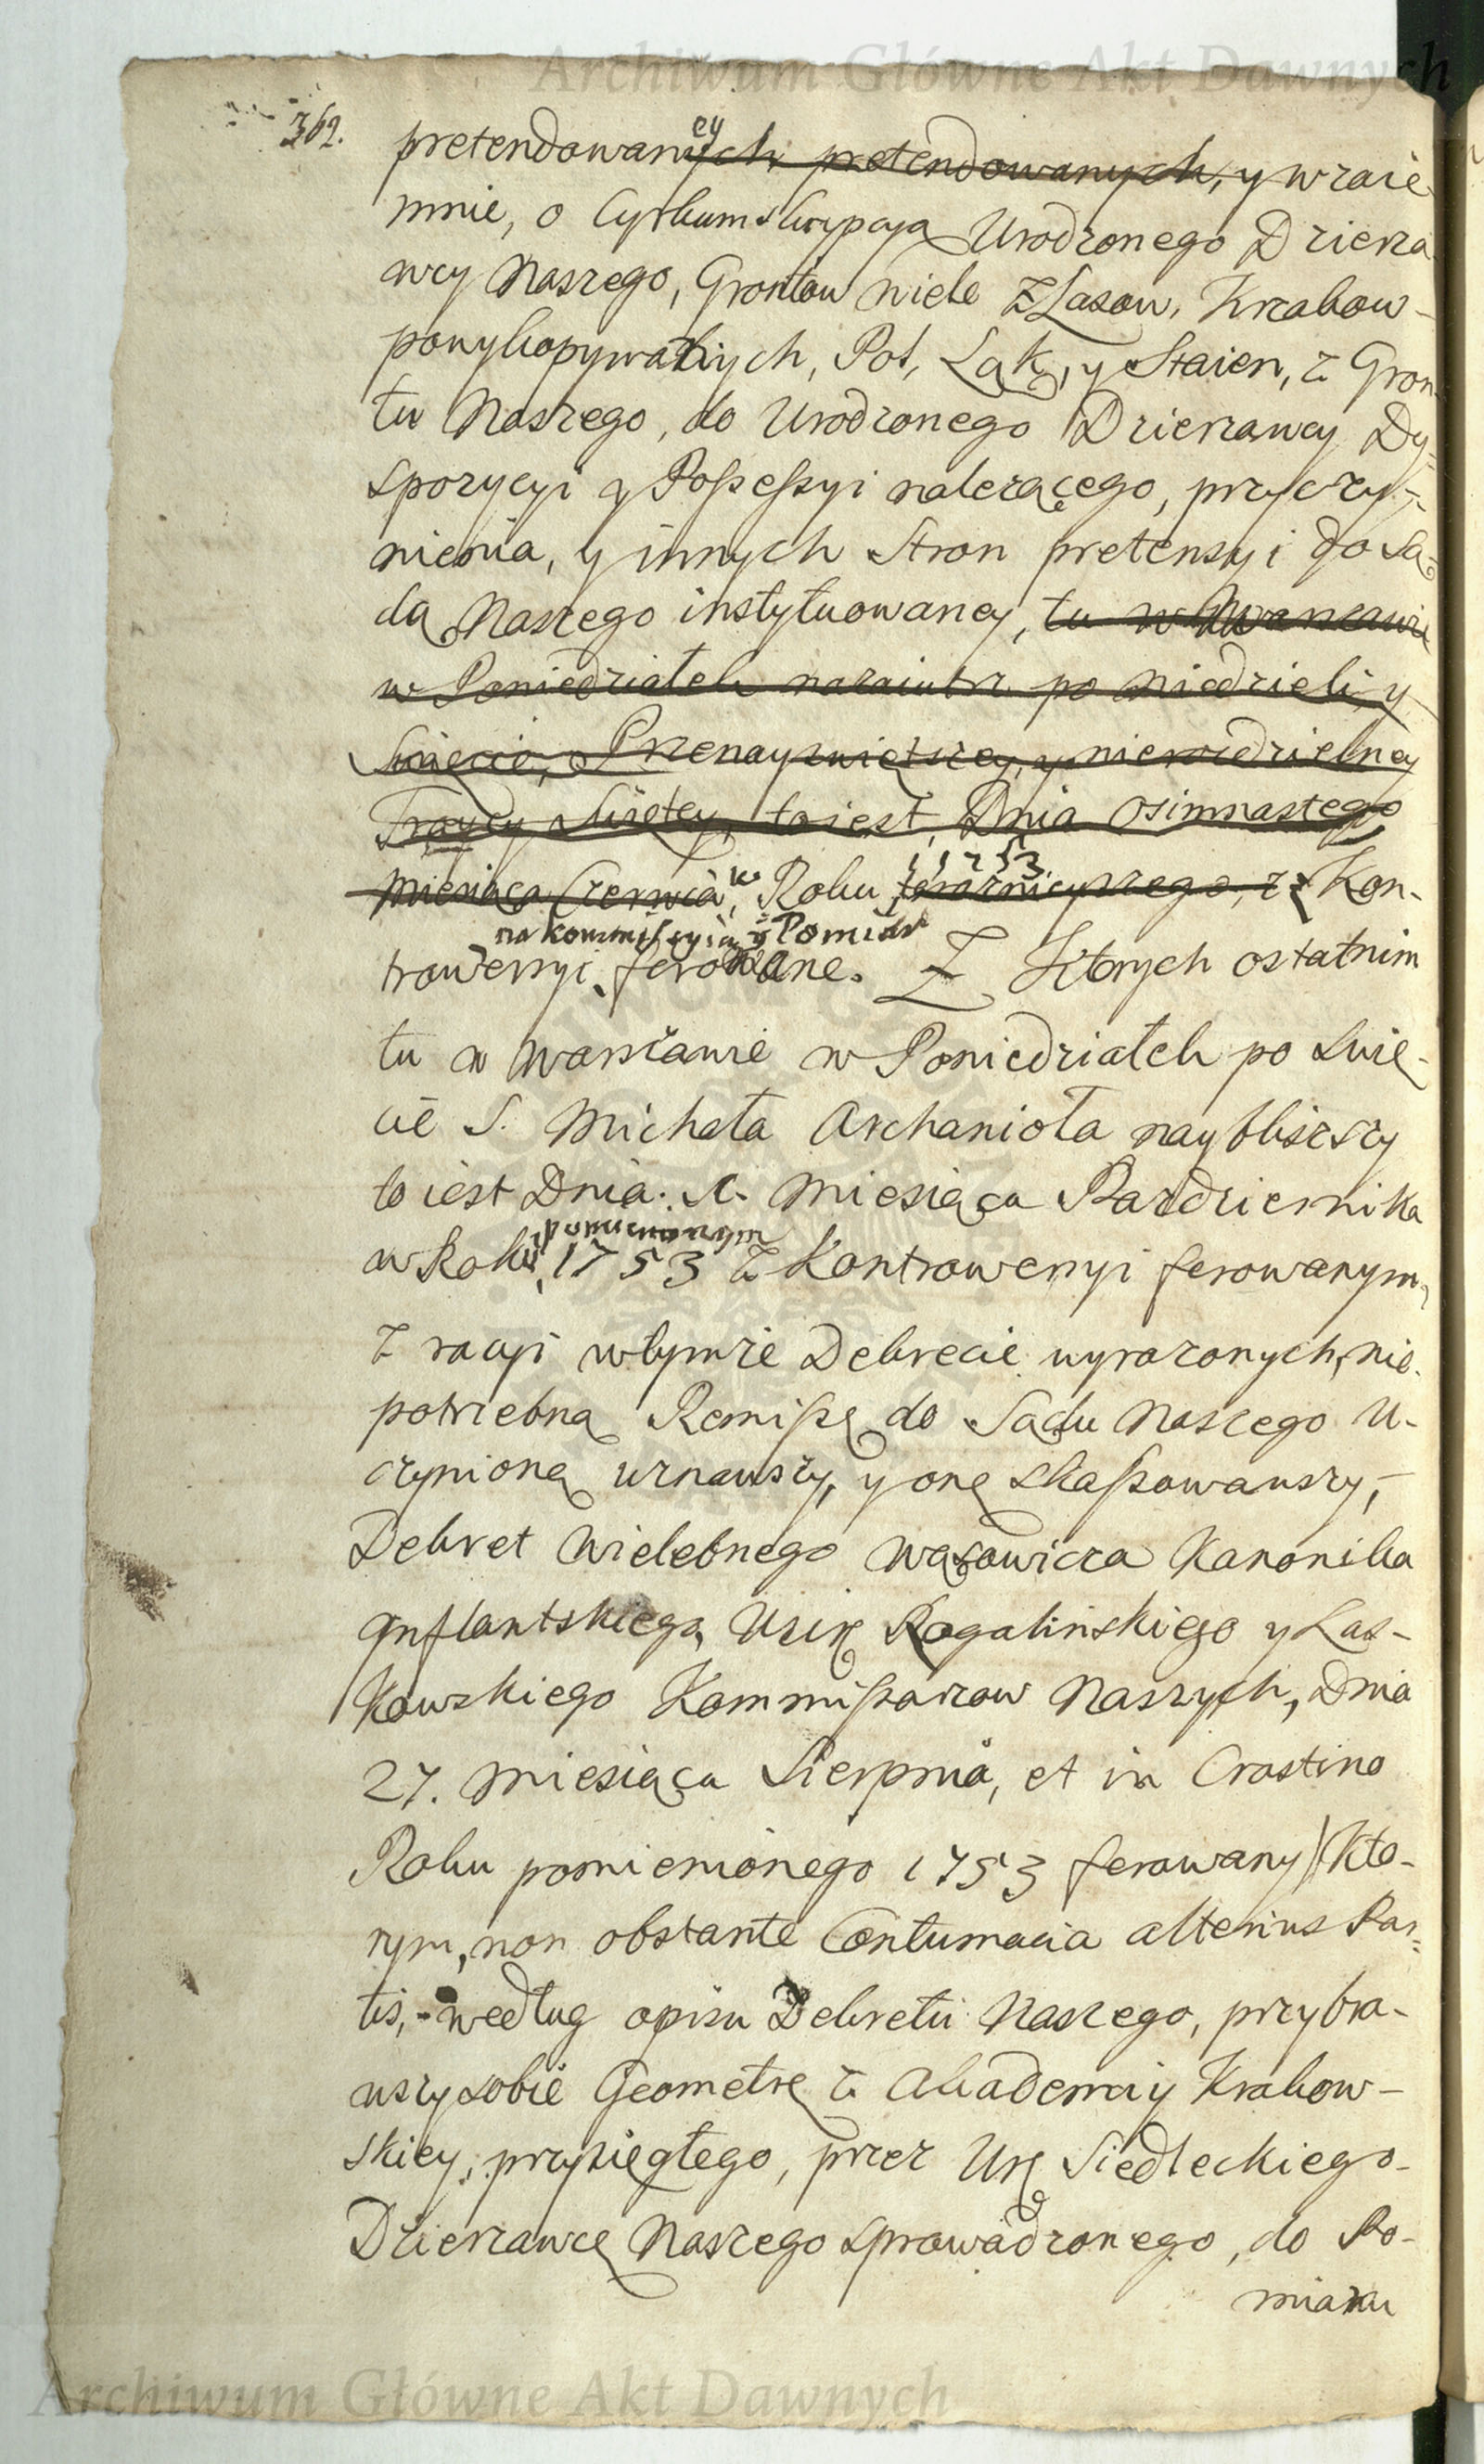 Archiwum Główne Akt Dawnych
362.
ey
pretendowanych pretendowanych, y wzaie
mnie, o Cyrkumskrypcyą Urodzonego Dzierza
awcy Naszego, Grontow wiele z Lasow, Krzakow
powykopywanych, Pol, Łąk, y Staien, z Gron
tu Naszego, do Urodzonego Dzierzawcy Dy-
spozycyi y Possessyi nalezącego, przyczy-
nienia, y innych Stron pretensyi do Są-
du Naszego instytuowaney, tu w Warszawie
w Poniedziałek nazaiutrz po Niedzieli y
Swięcie, Przenayswiętszey, y nierozdzielney
Troycy Swiętey, toiest, Dnia Osimnastego
1753
Miesiąca Czerwca, w Roku teraznieyszego, z z Kon-
na kommissyią y Pomiar
trowersyi ferowane. Z Ktorych ostatnim
tu w Warszawie w Poniedziałek po Swię-
cie S. Michała Archanioła nayblizszy
to iest Dnia. 1. Miesiąca Pazdziernika
pomienionym
w Roku, 1753 z Kontrowersyi ferowanym,
z racyi wtymze Dekrecie wyrazonych, nie-
potrzebną Remissę do Sądu Naszego u-
czynioną uznawszy, y onę skassowawszy,
Dekret Wielebnego Wąsowicza Kanonika
Inflantskiego, Uich Rogalinskiego y Las-
kowskiego Kommissarzow Naszych, Dnia
27. Miesiąca Sierpnia, et in Crastino
Roku pomienionego 1753 ferowany) Kto-
rym, non obstante Contumacia alterius Par-
tis, według opisu Dekretu Naszego, przybra-
wszy sobie Geometrę z Akademiy Krakow-
skiey, przysięgłego, przez Ur Siedleckiego
Dzierzawcę Naszego sprowadzonego, do Po-
miaru
Archiwum Główne Akt Dawnych